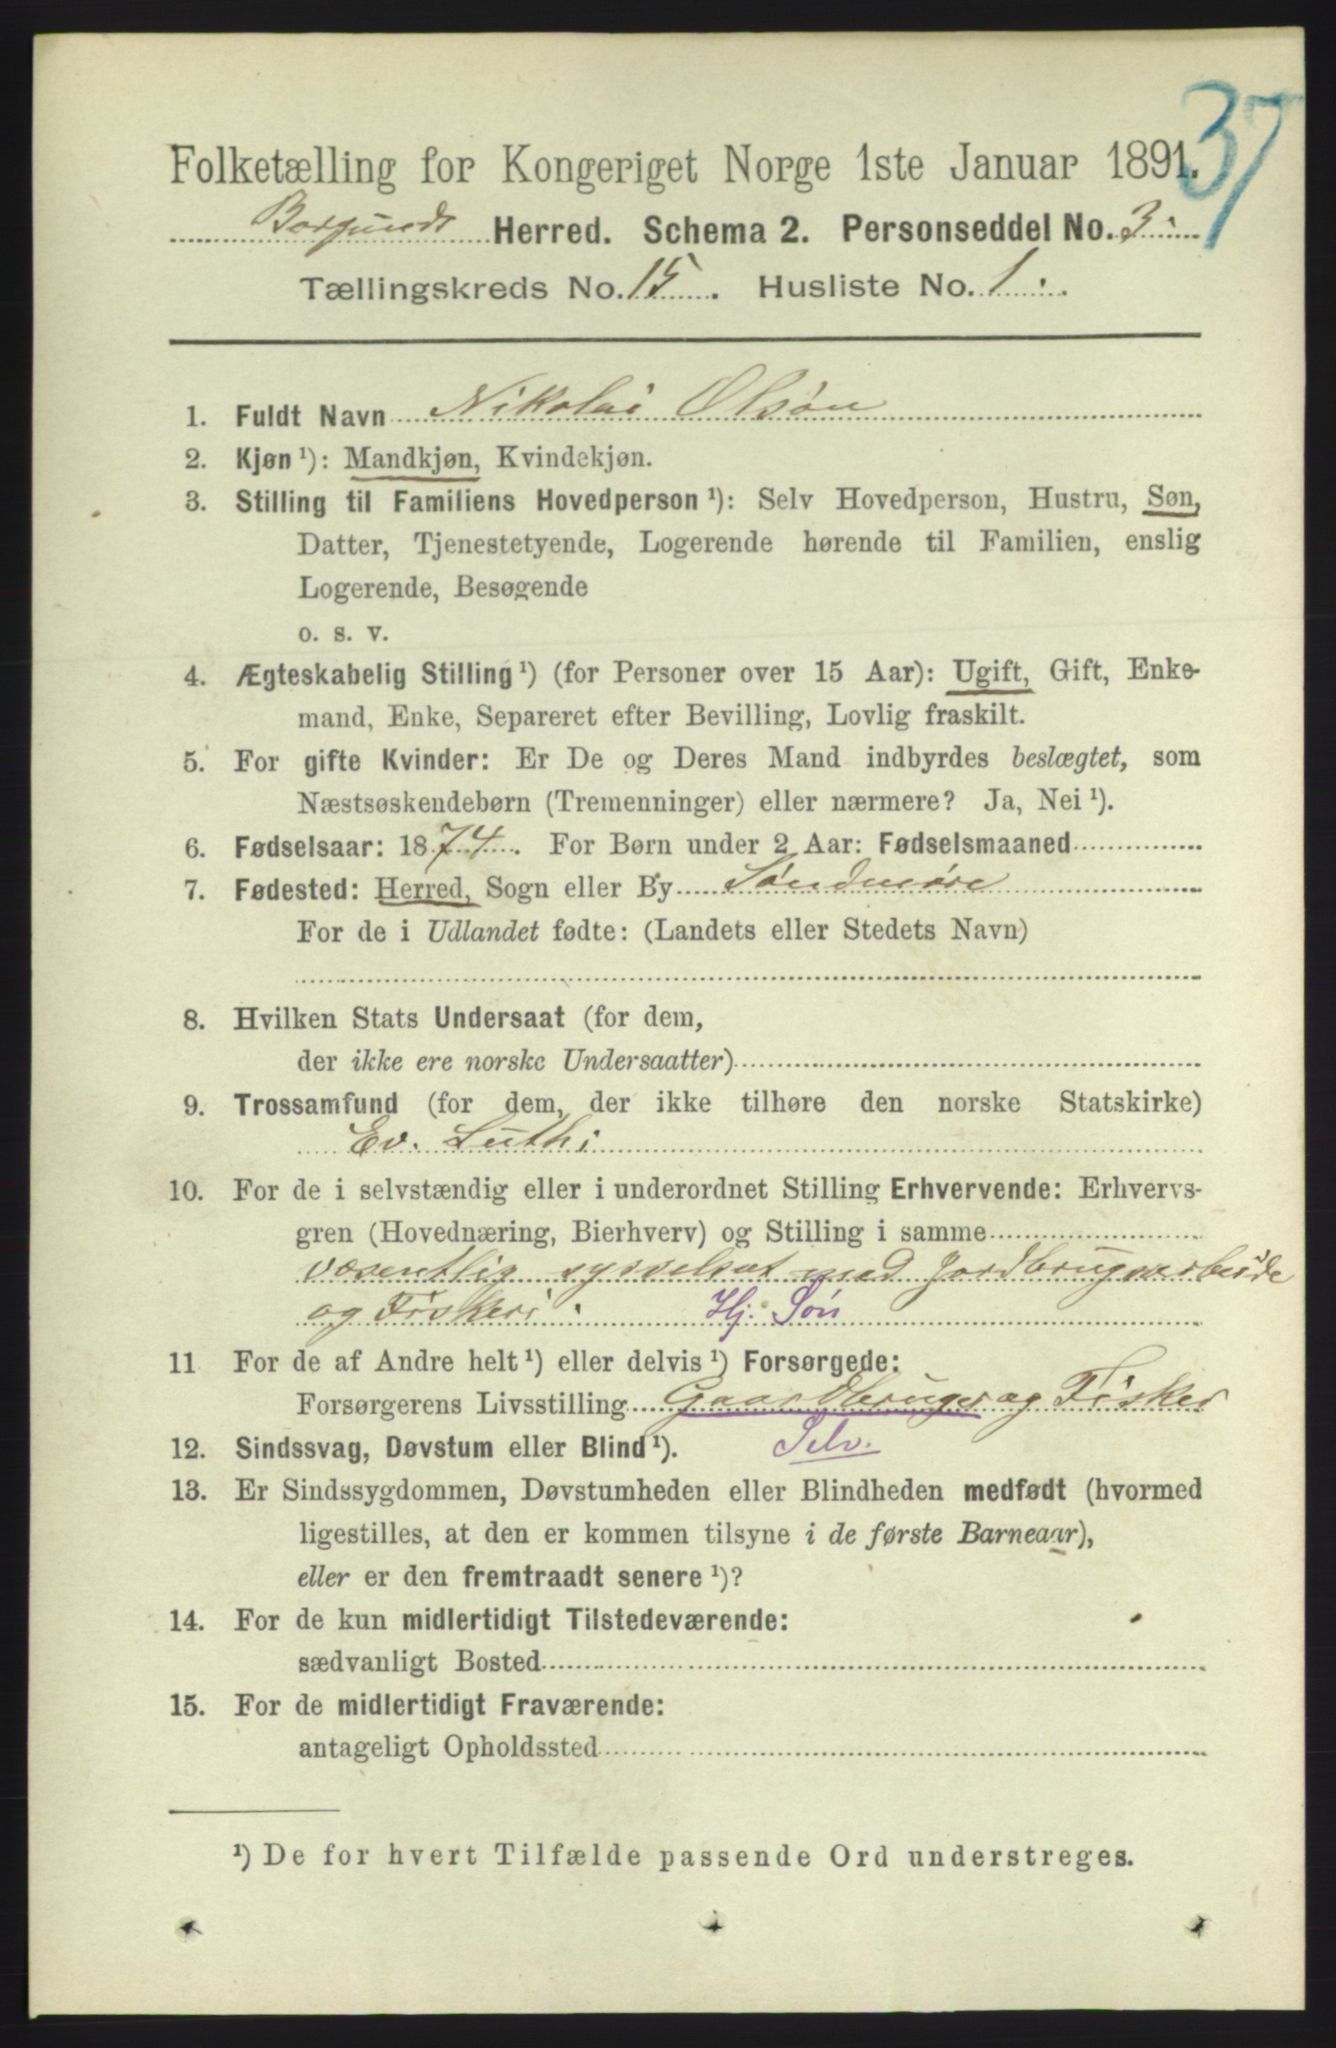 37
Folketælling for Kongeriget Norge 1ste Januar 1891.
Borgunds Herred. Schema 2. Personseddel No. 3.
Tællingskreds No. 15. Husliste No. 1.
1. Fuldt Navn Nikolai Olsön
2. Kjøn ¹): Mandkjøn, Kvindekjøn.
3. Stilling til Familiens Hovedperson ¹): Selv Hovedperson, Hustru, Søn,
Datter, Tjenestetyende, Logerende hørende til Familien, enslig
Logerende, Besøgende
o. s. v.
4. Ægteskabelig Stilling ¹) (for Personer over 15 Aar): Ugift, Gift, Enke-
mand, Enke, Separeret efter Bevilling, Lovlig fraskilt.
5. For gifte Kvinder: Er De og Deres Mand indbyrdes beslægtet, som
Næstsøskendebørn (Tremenninger) eller nærmere? Ja, Nei ¹).
6. Fødselsaar: 1874. For Børn under 2 Aar: Fødselsmaaned
7. Fødested: Herred, Sogn eller By Söndmöre
For de i Udlandet fødte: (Landets eller Stedets Navn)
8. Hvilken Stats Undersaat (for dem,
der ikke ere norske Undersaatter)
9. Trossamfund (for dem, der ikke tilhøre den norske Statskirke)
Ev. Luth:
10. For de i selvstændig eller i underordnet Stilling Erhvervende: Erhvervs-
gren (Hovednæring, Bierhverv) og Stilling i samme
væsentlig sysselsat med Jordbrugsarbeide
og Fiskeri. Hj. Søn
11 For de af Andre helt ¹) eller delvis ¹) Forsørgede:
Forsørgerens Livsstilling Gaardbruger og Fisker
12. Sindssvag, Døvstum eller Blind ¹). Selv.
13. Er Sindssygdommen, Døvstumheden eller Blindheden medfødt (hvormed
ligestilles, at den er kommen tilsyne i de første Barneaar),
eller er den fremtraadt senere ¹)?
14. For de kun midlertidigt Tilstedeværende:
sædvanligt Bosted
15. For de midlertidigt Fraværende:
antageligt Opholdssted
¹) De for hvert Tilfælde passende Ord understreges.